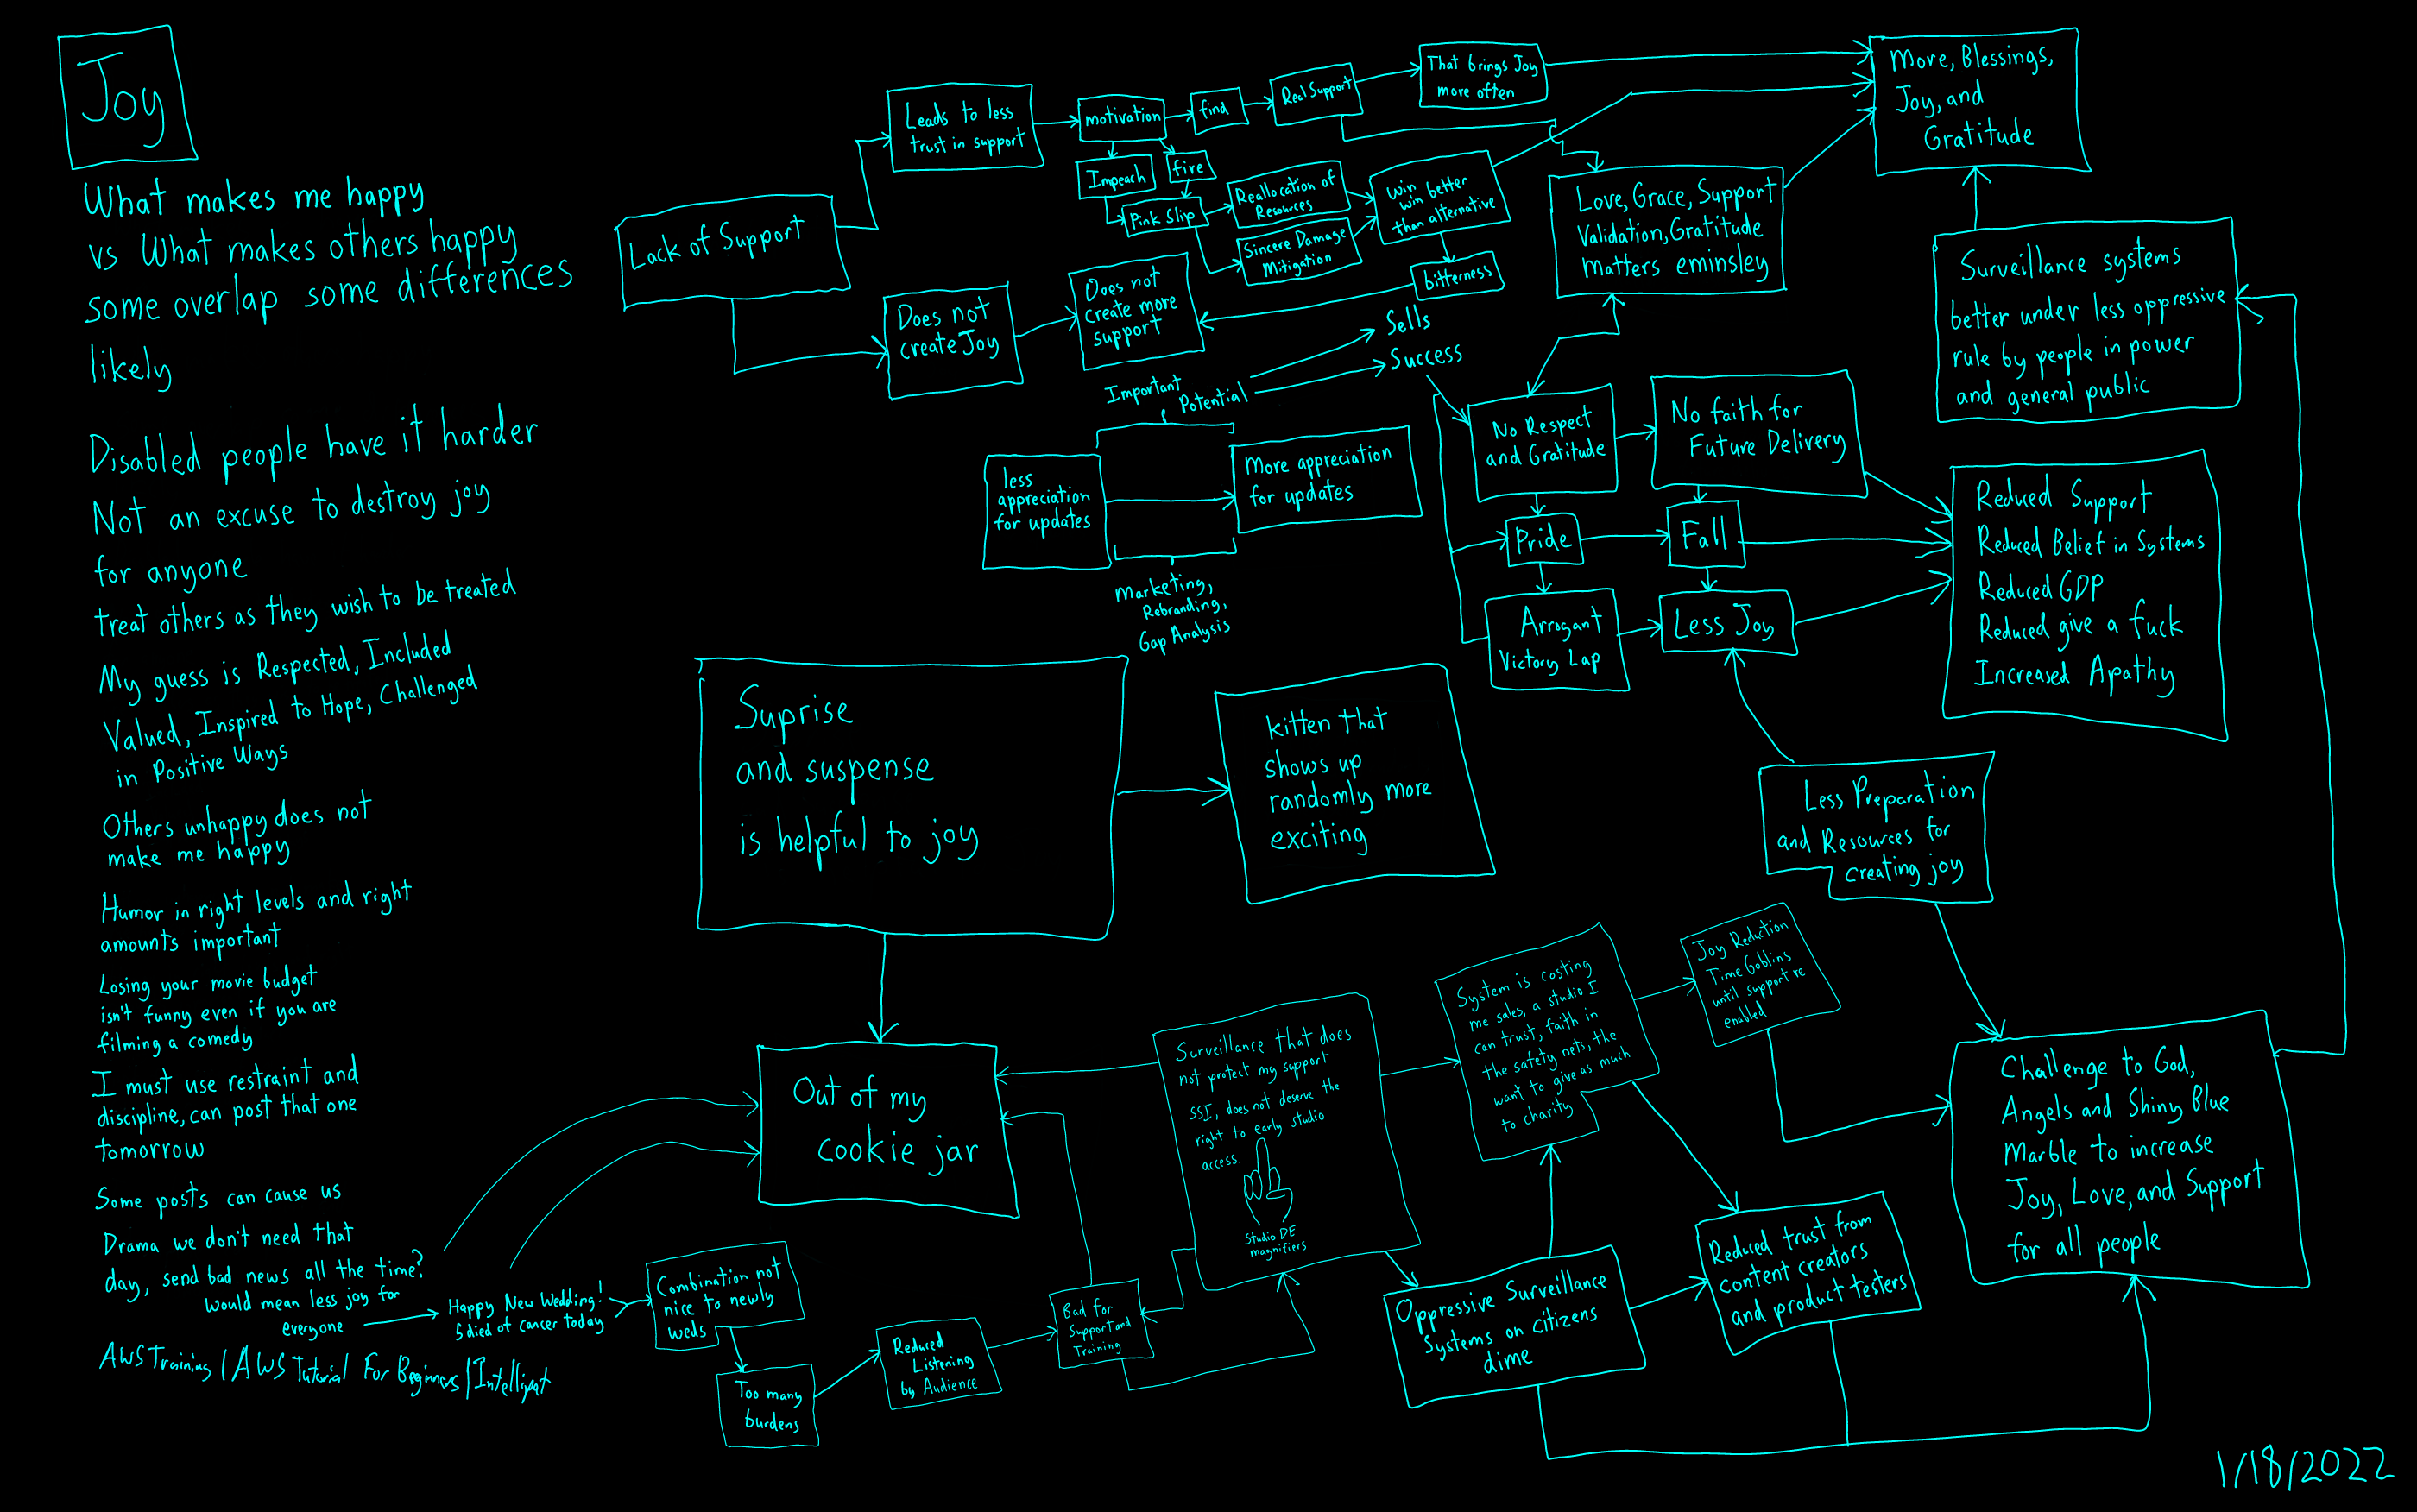 Joy
What makes me happy
vs What makes others happy
some overlap some differences
likely
Disabled people have it harder
Not an excuse to destroy joy
for anyone
treat others as they wish to be treated
My guess is Respected, Included
Valued, Inspired to Hope, Challenged
in Positive Ways
Others unhappy does not
make me happy
Humor in right levels and right
amounts important
Losing your movie budget
isn't funny even if you are
filming a comedy
I must use restraint and
discipline, can post that one
tomorrow
Some posts can cause us
Drama we don't need that
day, send bad news all the time?
would mean less joy for
everyone
Happy New Wedding!
5 died of cancer today
AWS Training / AWS Tutorial For Beginners / Intellipat
Combination not
nice to newly
weds
Too many
burdens
Reduced
Listening
by Audience
Bad for
Support and
Training
Lack of Support
Leads to less
trust in support
motivation
find
Real Support
That brings Joy
more often
More, Blessings,
Joy, and
Gratitude
Impeach
fire
Pink Slip
Reallocation of
Resources
Sincere Damage
Mitigation
win better
win
than alternative
bitterness
Does not
create Joy
Does not
create more
support
Love, Grace, Support
Validation, Gratitude
Matters eminsley
Surveillance systems
better under less oppressive
rule by people in power
and general public
Sells
Success
Important
Potential
less
appreciation
for updates
More appreciation
for updates
Marketing,
Rebranding,
Gap Analysis
No Respect
and Gratitude
No faith for
Future Delivery
Pride
Fall
Arrogant
Victory Lap
Less Joy
Reduced Support
Reduced Belief in Systems
Reduced GDP
Reduced give a fuck
Increased Apathy
Suprise
and suspense
is helpful to joy
kitten that
shows up
randomly more
exciting
Out of my
cookie jar
Less Preparation
and Resources for
creating joy
Surveillance that does
not protect my support
SSI, does not deserve the
right to early studio
access.
Studio DE
magnifiers
System is costing
me sales, a studio I
can trust, faith in
the safety nets, the
want to give as much
to charity
Joy Reduction
Time Goblins
until support re
enabled
Oppressive Surveillance
Systems on citizens
dime
Reduced trust from
content creators
and product testers
Challenge to God,
Angels and Shiny Blue
Marble to increase
Joy, Love, and Support
for all people
1/18/2022